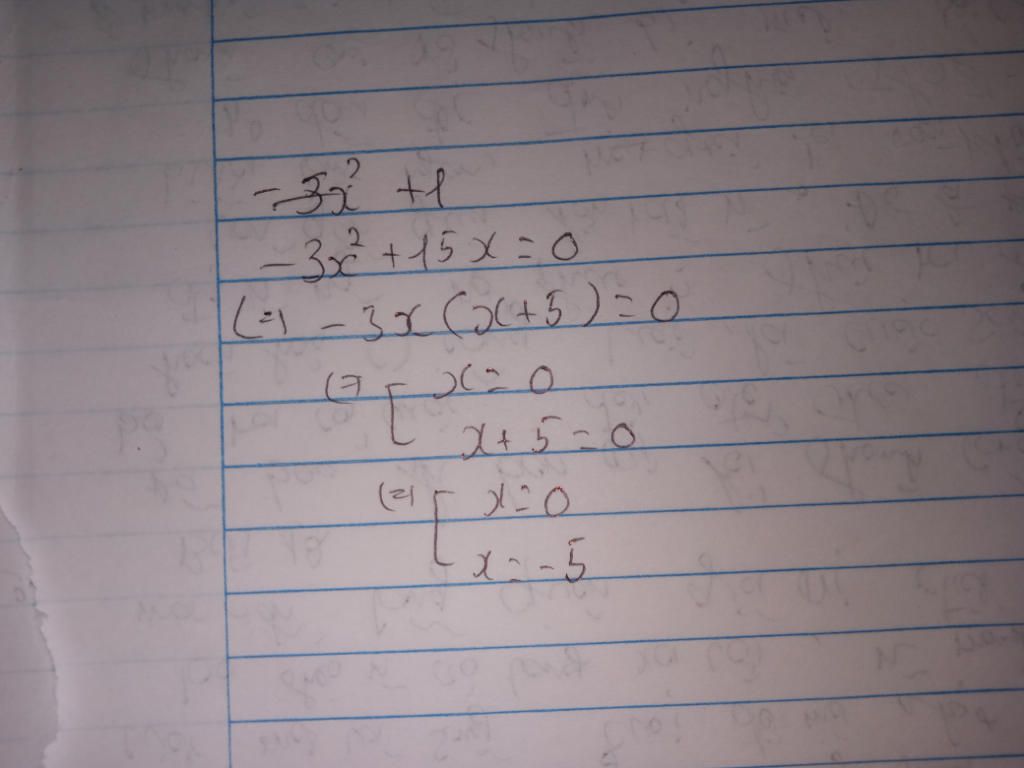 -3x² +1
-3x² + 15x = 0
(=) -3x(x+5) = 0
(=) [ x = 0
x + 5 = 0
(=) [ x = 0
x = -5